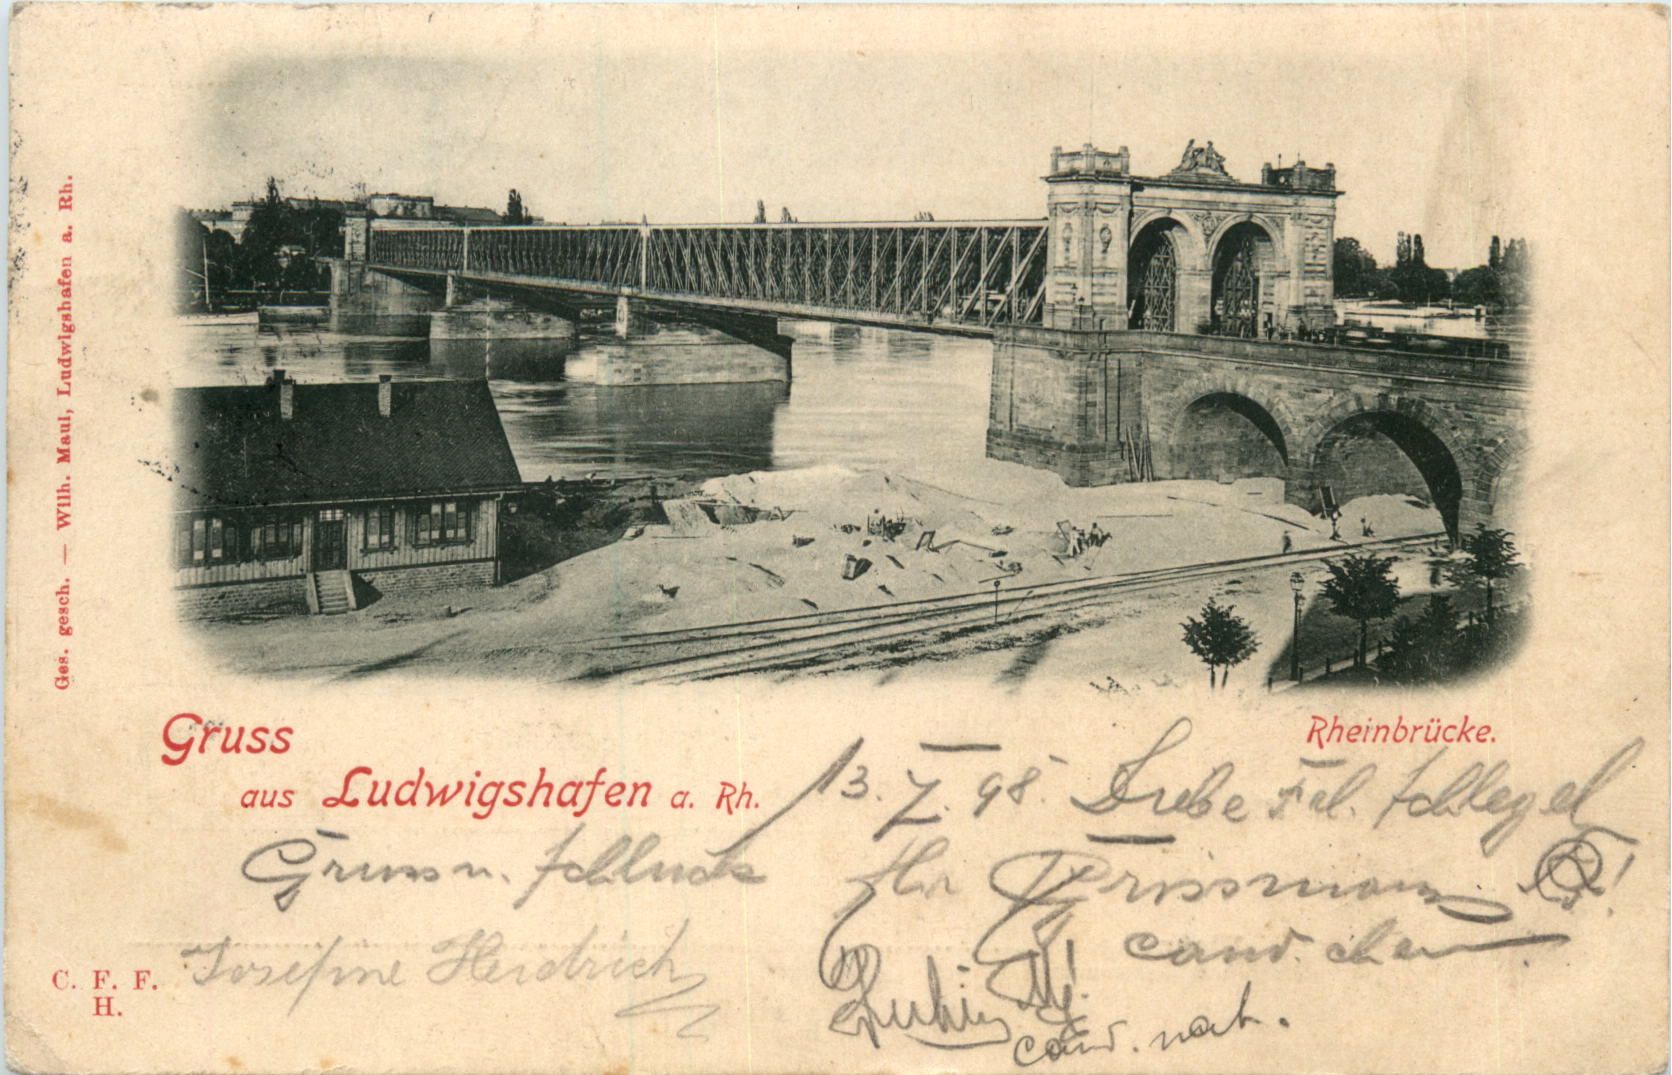 Ges. gesch. — Wilh. Maul, Ludwigshafen a. Rh.
Gruss
aus Ludwigshafen a. Rh.
Rheinbrücke.
13. 98. Liebe Frl. Schlegel
Gruss u. Schluck
Ihr
cand. chem.
Josefine Heidrich
cand. nat.
C. F. F.
H.